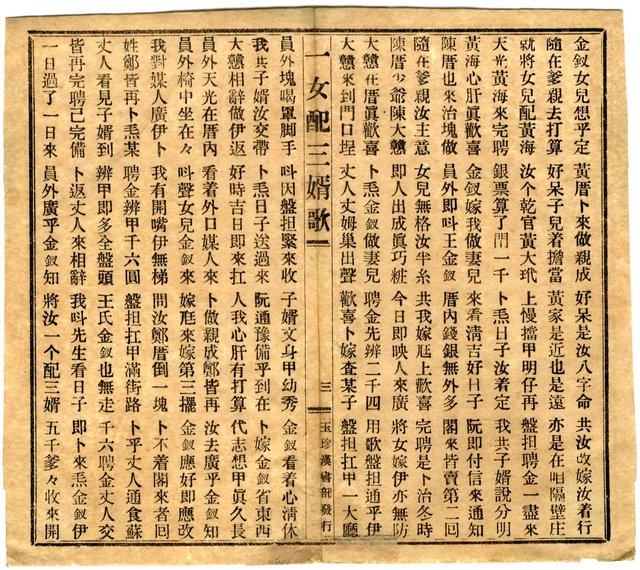 金釵女兒想乎定 黃厝卜來做親成 好呆是汝八字命 共汝改嫁汝着行
隨在爹親去打算 好呆子兒着擔當 黃家是近也是遠 亦是在咱隔壁庄
就將女兒配黃海 汝个乾官黃大玳 上慢擋甲明仔再 盤担聘金一盡來
天光黃海來完聘 銀票算了門一千 卜炁日子汝着定 我共子婿說分明
黃海心肝眞歡喜 金釵嫁我做妻兒 來看清吉好日子 阮即付信來通知
陳厝也來治塊做 員外即呌王金釵 厝內錢銀無外多 閣來皆賣第二囘
隨在爹親汝主意 女兒無格汝半糸 共我嫁尫上歡喜 完聘是卜治冬時
陳厝少爺陳大戇 即人出成眞巧粧 今日即映人來廣 將女嫁伊亦無防
大戇在厝眞歡喜 卜炁金釵做妻兒 聘金先辨二千四 用歌盤担通乎伊
大戇來到門口埕 丈人丈姆巢出聲 歡喜卜嫁查某子 盤担扛甲一大廳
一女配三婿歌 三 玉珍漢書部發行
員外塊喝罩脚手 呌因盤担緊來收 子婿文身甲幼秀 金釵看着心清休
我共子婿汝交帶 卜炁日子送過來 阮通豫備乎到在 卜嫁金釵省東西
大戇相辭做伊返 好時吉日即來扛 人我心肝有打算 代志想甲眞久長
員外天光在厝內 看着外口媒人來 卜做親成鄭皆再 汝去廣乎金釵知
員外椅中坐在々 呌聲女兒金釵來 嫁尫來嫁第三擺 金釵應好即應改
我對媒人廣伊卜 我有開嘴伊無梯 問汝鄭厝倒一塊 卜不着閣來者囘
姓鄭皆再卜炁某 聘金辨甲千六圓 盤担扛甲滿街路 卜乎丈人通食蘇
丈人看見子婿到 辨甲即多全盤頭 王氏金釵也無走 千六聘金丈人交
皆再完聘己完備 卜返丈人來相辭 我呌先生看日子 即卜來炁金釵伊
一日過了一日來 員外廣乎金釵知 將汝一个配三婿 五千爹々收來開